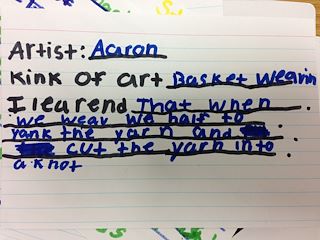 Artist: Aaron
Kink of art Basket wearin
I learend That when
we weav we half to
yank the yarn and
cut the yarn into
a knot